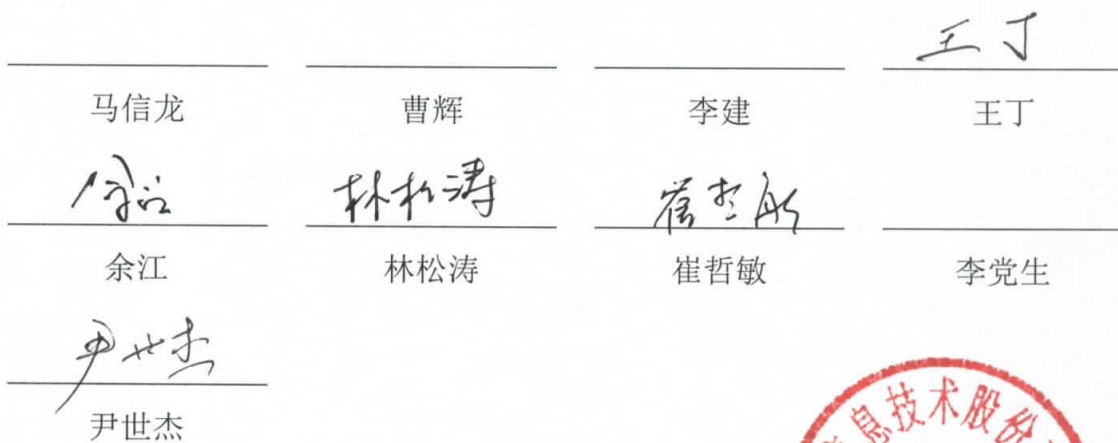 王丁
马信龙 曹辉 李建 王丁
余江 林松涛 崔哲敏
余江 林松涛 崔哲敏 李党生
尹世杰
尹世杰
息技术股份